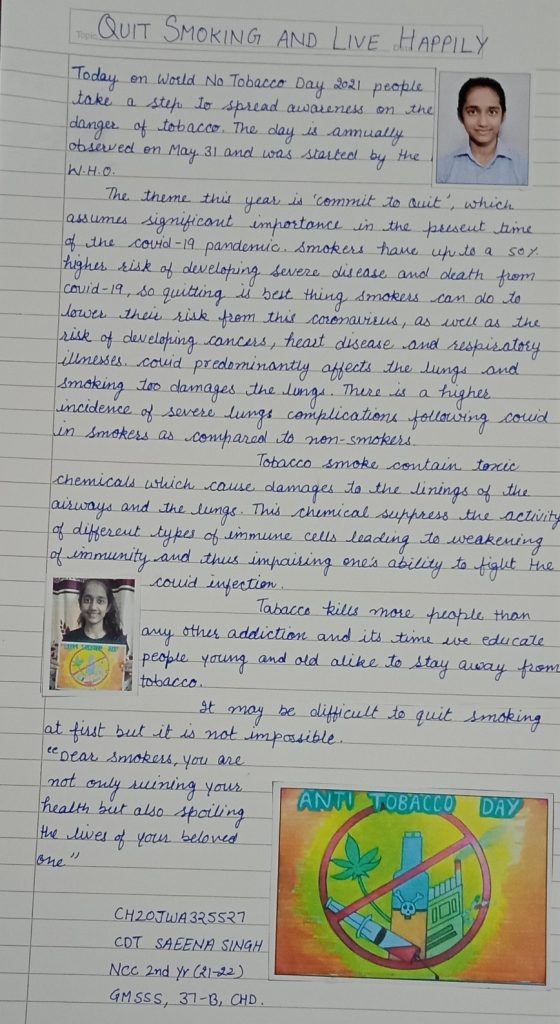 Topic
Date
QUIT SMOKING AND LIVE HAPPILY
Today on World No Tobacco Day 2021 people
take a step to spread awareness on the
danger of tobacco. The day is annually
observed on May 31 and was started by the
W.H.O.
The theme this year is 'commit to quit', which
assumes significant importance in the present time
of the covid-19 pandemic. Smokers have up to a 50%
higher risk of developing severe disease and death from
covid-19, so quitting is best thing smokers can do to
lower their risk from this coronavirus, as well as the
risk of developing cancers, heart disease and respiratory
illnesses. covid predominantly affects the lungs and
smoking too damages the lungs. There is a higher
incidence of severe lungs complications following covid
in smokers as compared to non-smokers.
Tobacco smoke contain toxic
chemicals which cause damages to the linings of the
airways and the lungs. This chemical suppress the activity
of different types of immune cells leading to weakening
of immunity and thus impairing one's ability to fight the
covid infection.
Tabacco kills more people than
any other addiction and its time we educate
people young and old alike to stay away from
tobacco.
It may be difficult to quit smoking
at first but it is not impossible.
"Dear smokers, you are
not only ruining your
health but also spoiling
the lives of your beloved
one"
ANTI TOBACCO DAY
CH20JWA325527
CDT SAEENA SINGH
NCC 2nd Yr (21-22)
GMSSS, 37-B, CHD.